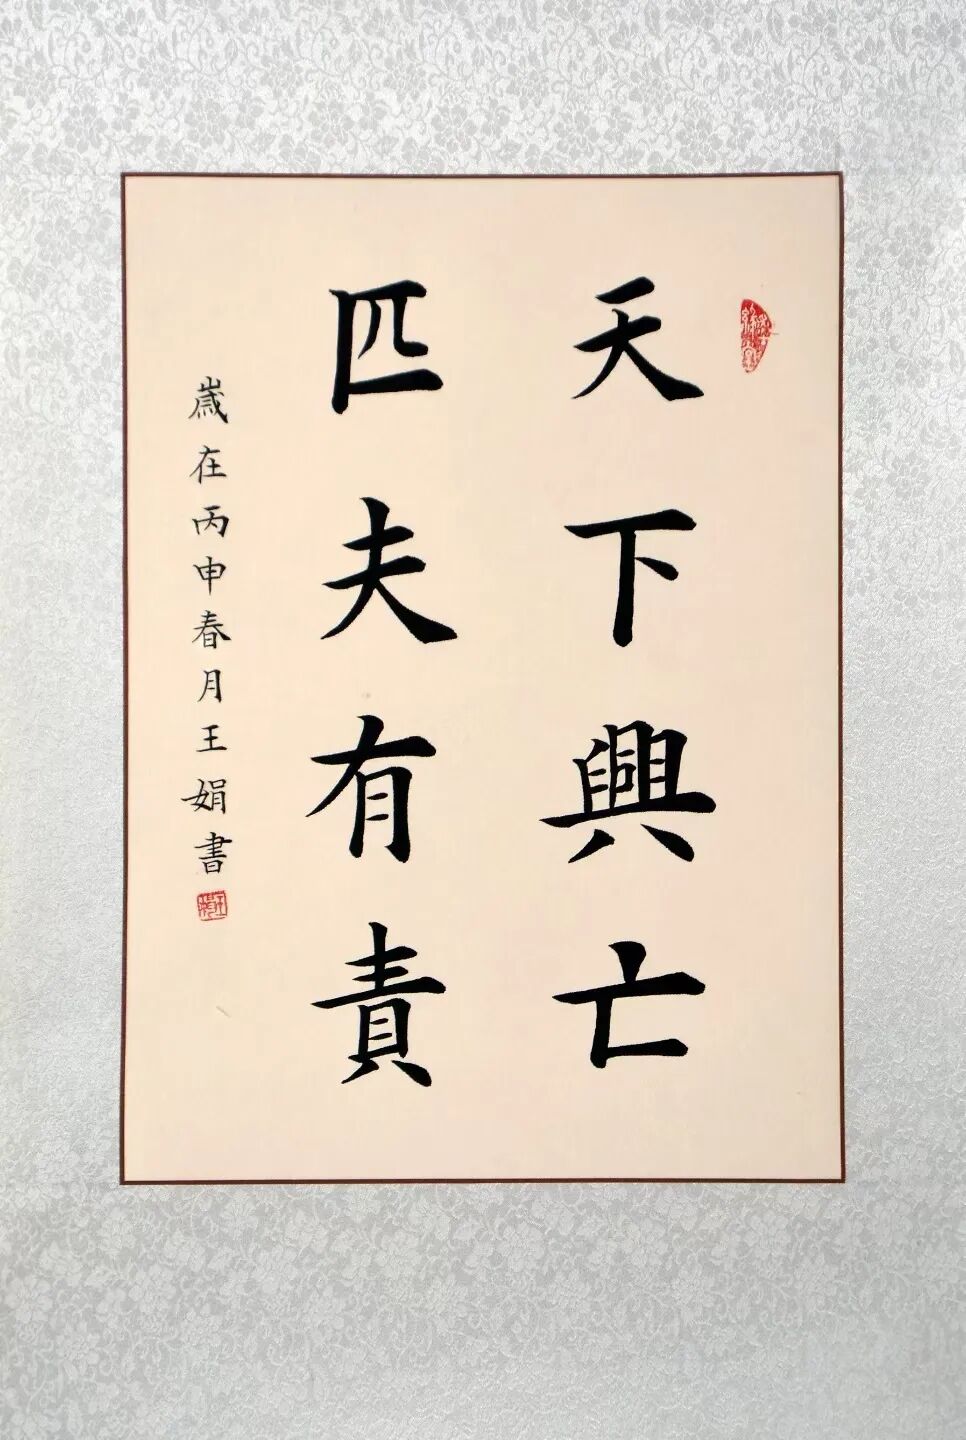 天下興亡
匹夫有責
歲在丙申春月王娟書
王娟